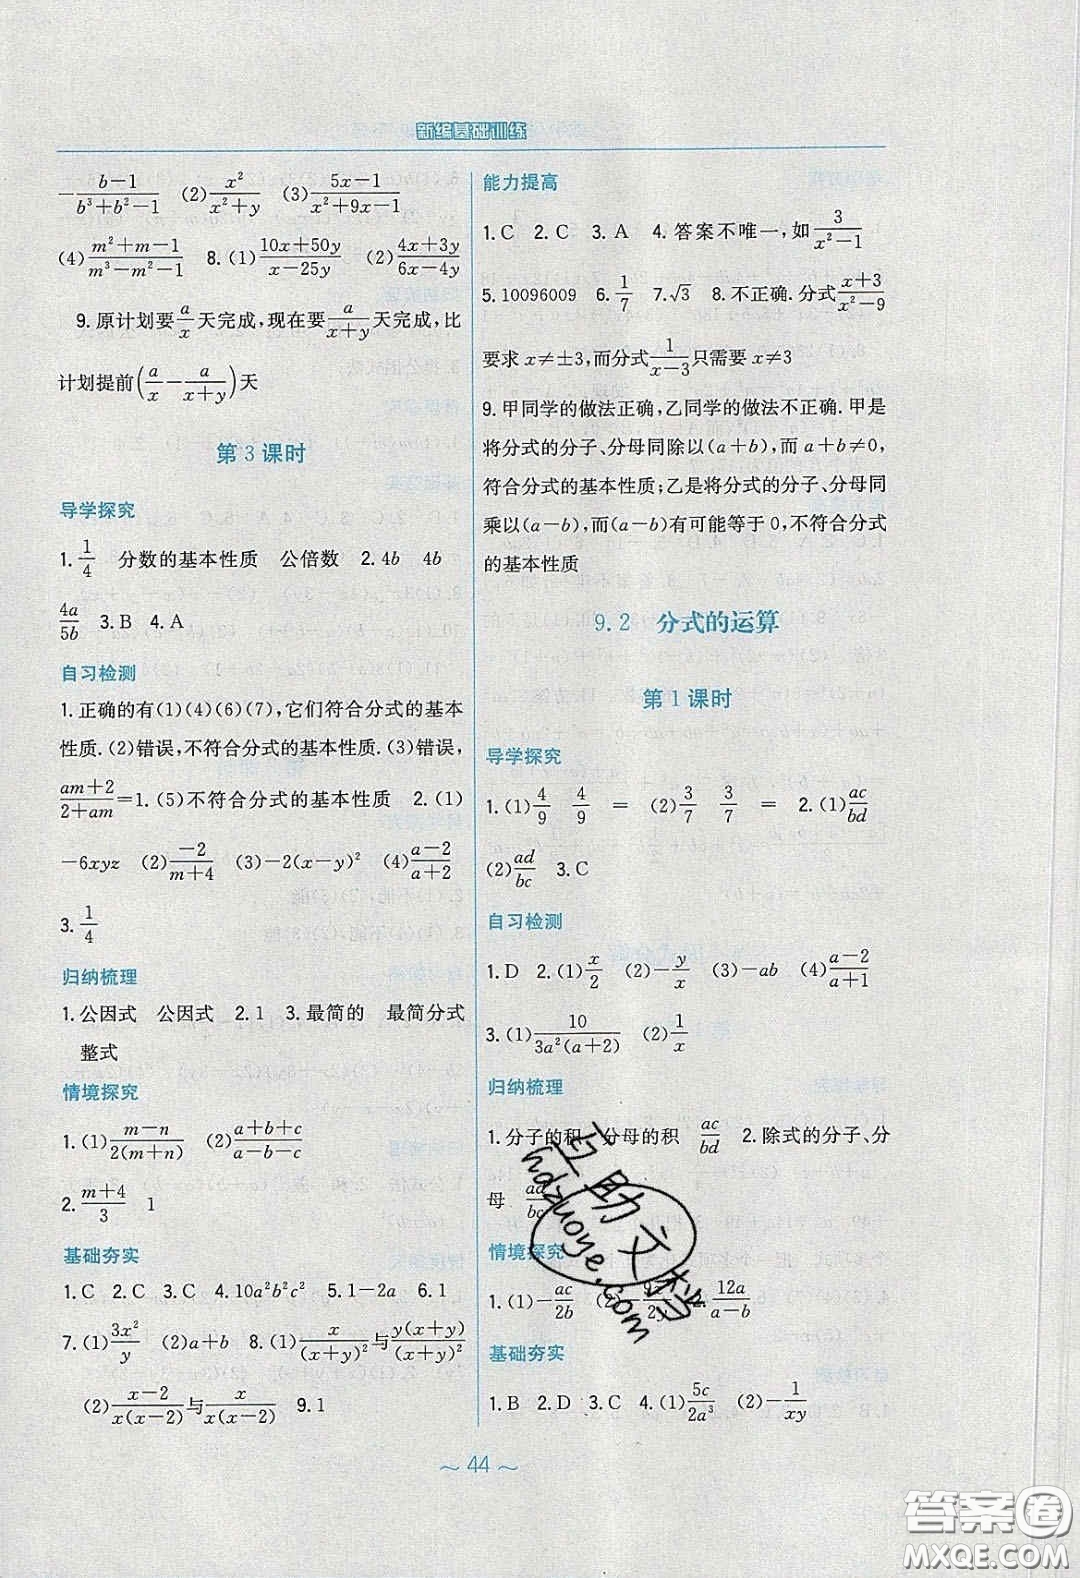 新编基础训练
-(b-1)/(b³+b²-1) (2) x²/(x²+y) (3) (5x-1)/(x²+9x-1)
(4) (m²+m-1)/(m³-m²-1) 8.(1) (10x+50y)/(x-25y) (2) (4x+3y)/(6x-4y)
9.原计划要 a/x 天完成,现在要 a/(x+y) 天完成,比
计划提前(a/x - a/(x+y))天
第3课时
导学探究
1. 1/4 分数的基本性质 公倍数 2.4b 4b
4a/5b 3.B 4.A
自习检测
1.正确的有(1)(4)(6)(7),它们符合分式的基本
性质.(2)错误,不符合分式的基本性质.(3)错误,
(am+2)/(2+am)=1.(5)不符合分式的基本性质 2.(1)
-6xyz (2) -2/(m+4) (3)-2(x-y)² (4) (a-2)/(a+2)
3. 1/4
归纳梳理
1.公因式 公因式 2.1 3.最简的 最简分式
整式
情境探究
1.(1) (m-n)/(2(m+n)) (2) (a+b+c)/(a-b-c)
2. (m+4)/3 1
基础夯实
1.C 2.C 3.C 4.10a²b²c² 5.1-2a 6.1
7.(1) 3x²/y (2)a+b 8.(1) x/(x+y)² 与 y(x+y)/(x+y)²
(2) (x-2)/(x(x-2)) 与 x/(x(x-2)) 9.1
能力提高
1.C 2.C 3.A 4.答案不唯一,如 3/(x²-1)
5.10096009 6. 1/7 7.√3 8.不正确.分式 (x+3)/(x²-9)
要求 x≠±3,而分式 1/(x-3) 只需要 x≠3
9.甲同学的做法正确,乙同学的做法不正确.甲是
将分式的分子、分母同除以(a+b),而 a+b≠0,
符合分式的基本性质;乙是将分式的分子、分母同
乘以(a-b),而(a-b)有可能等于0,不符合分式
的基本性质
9.2 分式的运算
第1课时
导学探究
1.(1) 4/9 4/9 = (2) 3/7 3/7 = 2.(1) ac/bd
(2) ad/bc 3.C
自习检测
1.D 2.(1) x/2 (2)-y/x (3)-ab (4) (a-2)/(a+1)
3.(1) 10/(3a²(a+2)) (2) 1/x
归纳梳理
1.分子的积 分母的积 ac/bd 2.除式的分子、分
母 ad/bc
情境探究
1.(1)-ac/2b (2) 2. 12a/(a-b)
基础夯实
1.B 2.D 3.C 4.(1) 5c/2a³ (2)-1/xy
～44～
互助文档
hdzuoye.com
答案圈
MXQE.COM